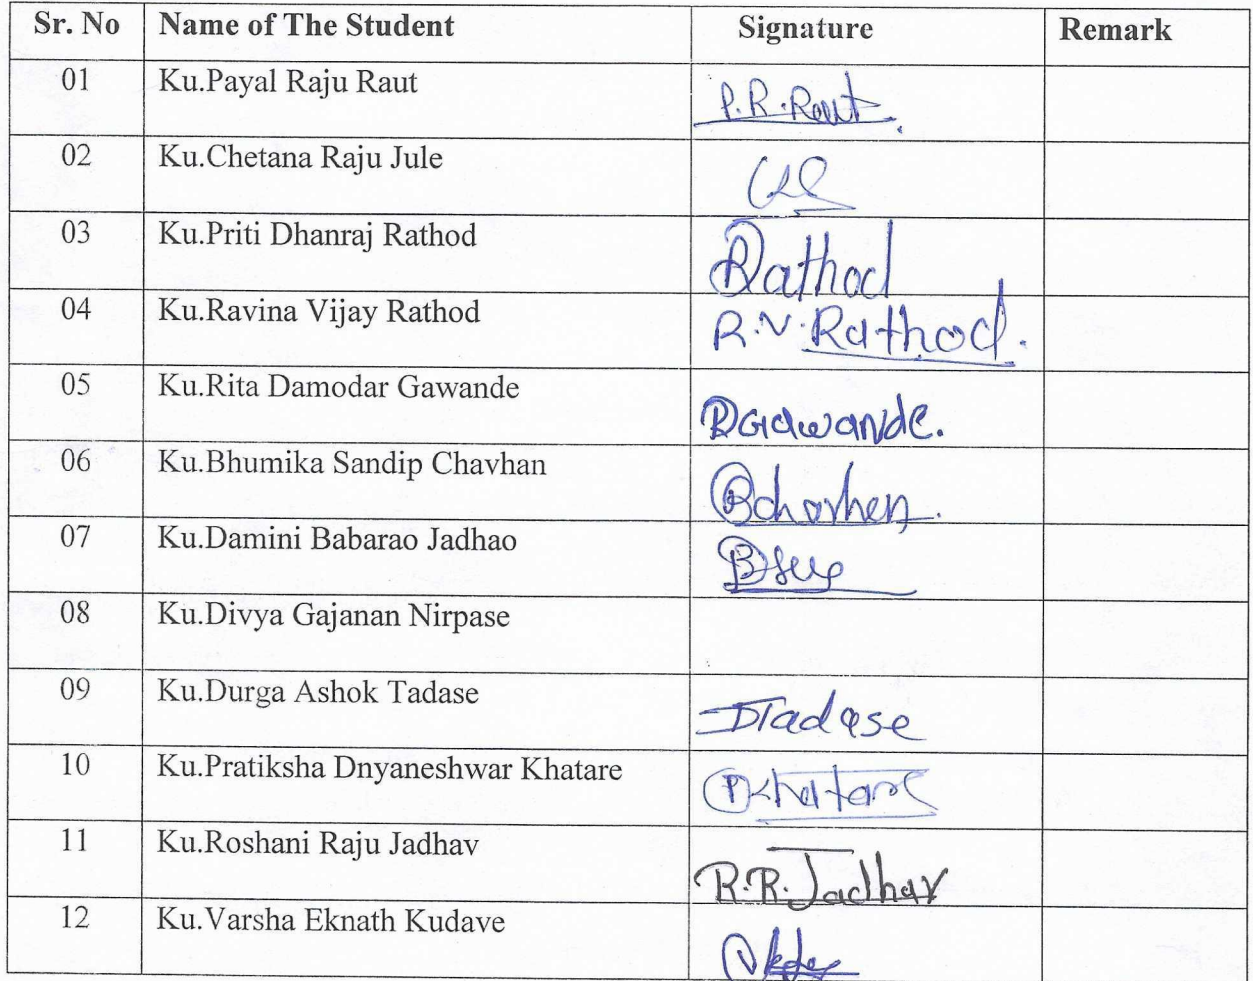 Sr. No Name of The Student Signature Remark
01 Ku.Payal Raju Raut P.R.Raut
02 Ku.Chetana Raju Jule
03 Ku.Priti Dhanraj Rathod Rathod
04 Ku.Ravina Vijay Rathod R.V.Rathod.
05 Ku.Rita Damodar Gawande RGawande.
06 Ku.Bhumika Sandip Chavhan
07 Ku.Damini Babarao Jadhao
08 Ku.Divya Gajanan Nirpase
09 Ku.Durga Ashok Tadase DTadase
10 Ku.Pratiksha Dnyaneshwar Khatare PKhatare
11 Ku.Roshani Raju Jadhav R.R.Jadhav
12 Ku.Varsha Eknath Kudave